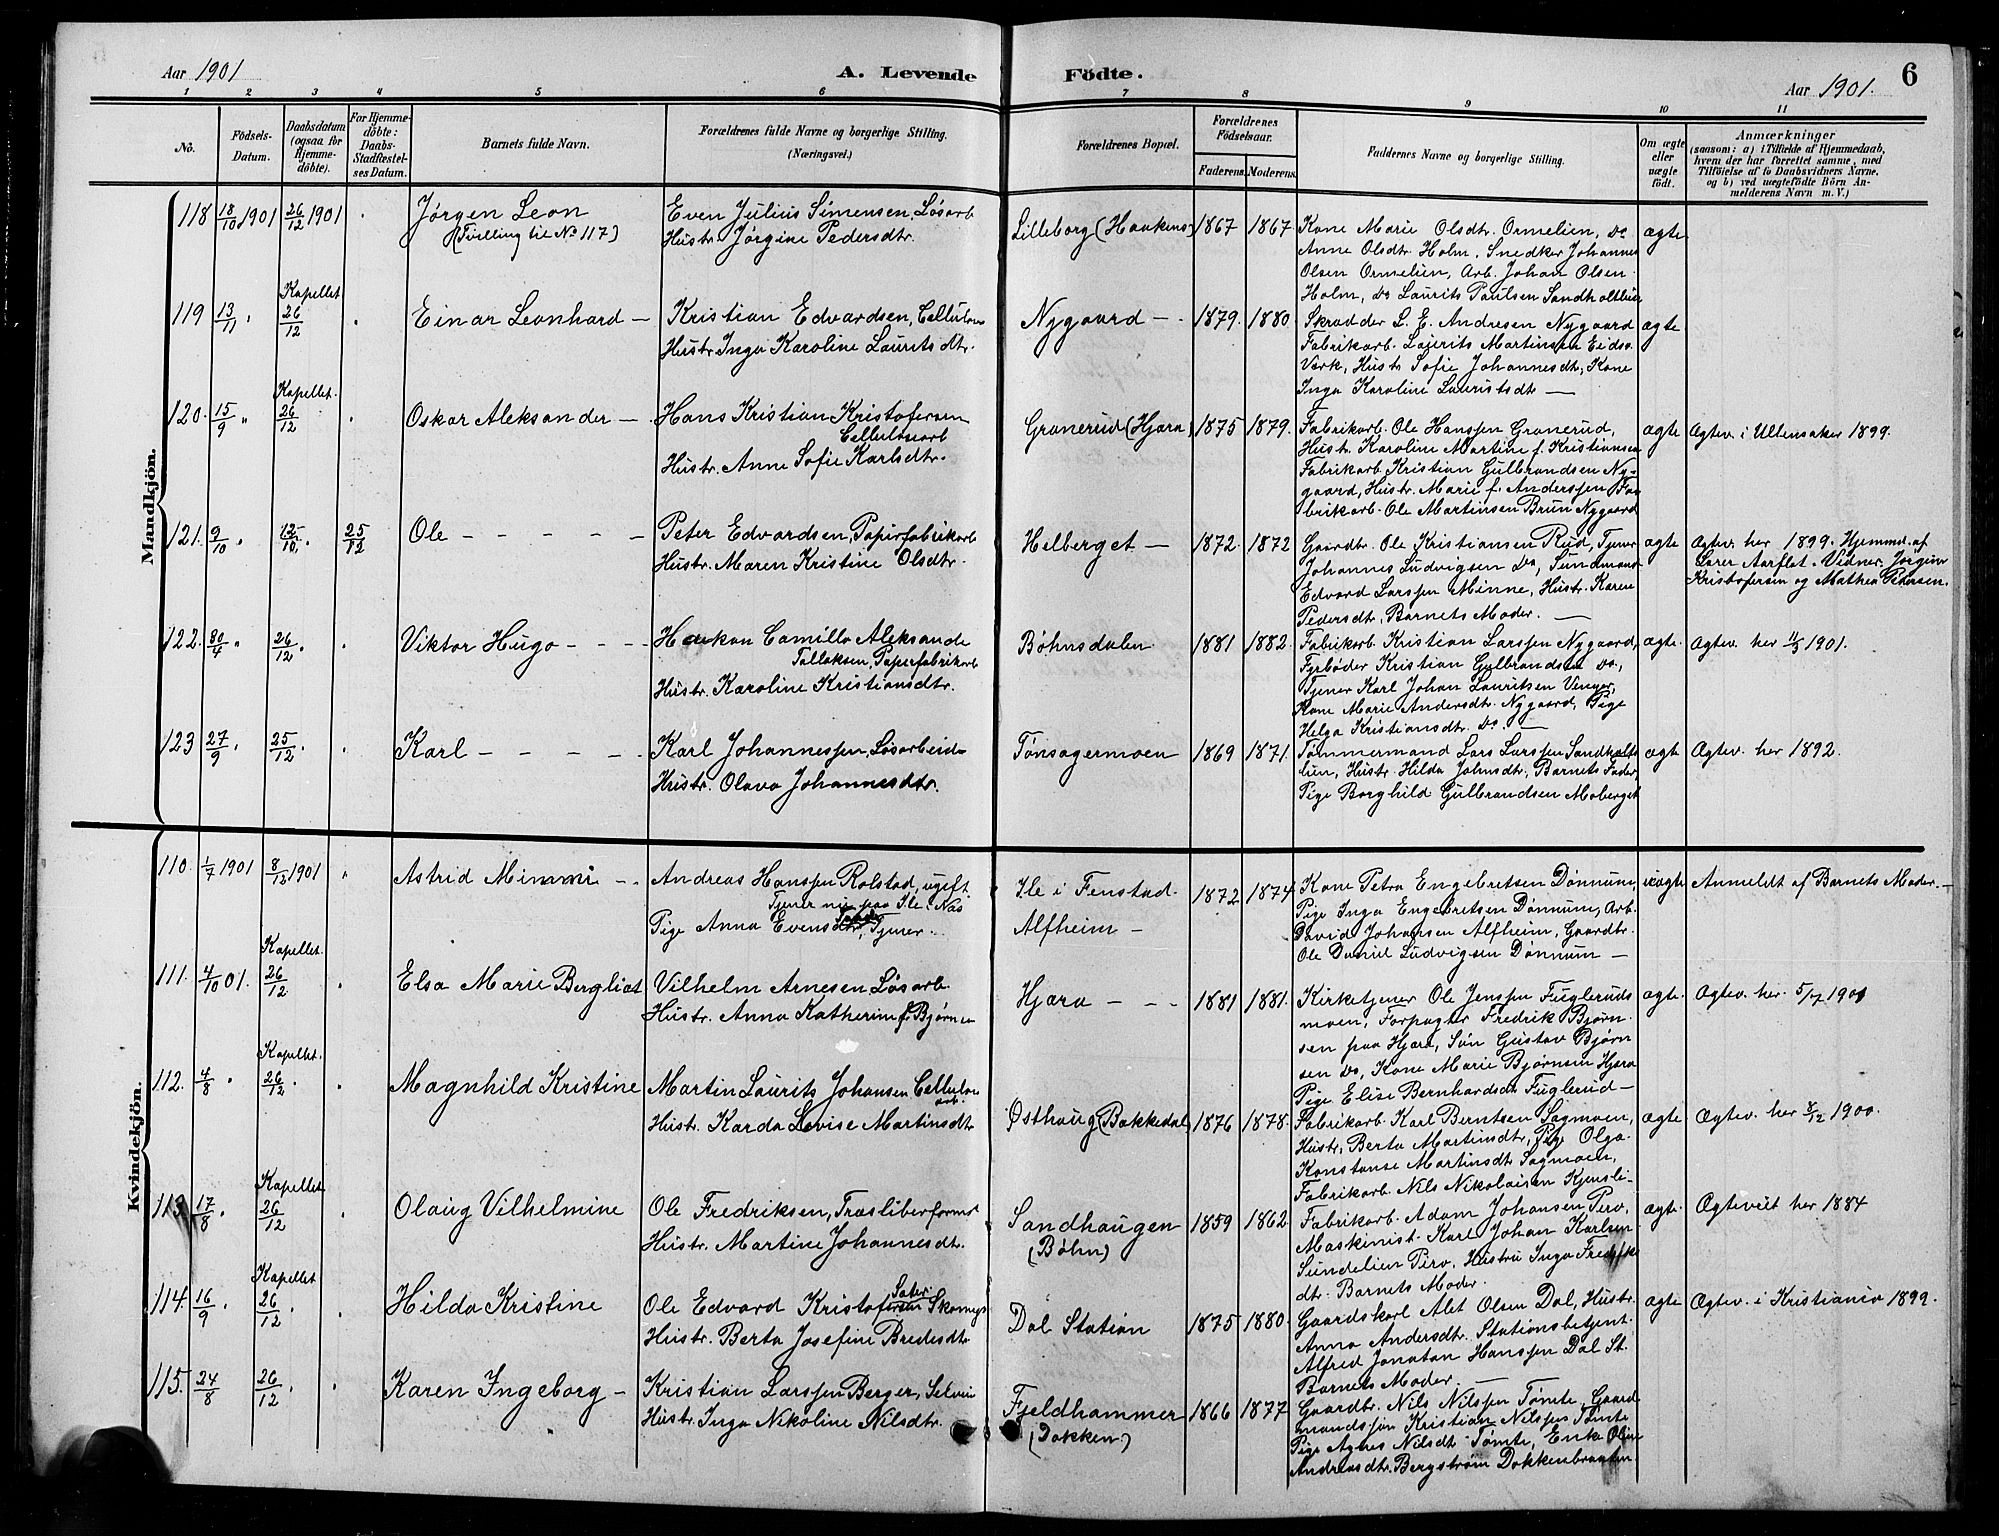 Aar 1901
A. Levende Födte.
Aar 1901.
6
1 2 3 4 5 6 7 8 9 10 11
No.
Födsels-
Datum.
Daabsdatum
(ogsaa for
Hjemme-
döbte).
For Hjemme-
döbte:
Daabs-
Stadfæstel-
ses Datum.
Barnets fulde Navn.
Forældrenes fulde Navne og borgerlige Stilling.
(Næringsvei.)
Forældrenes Bopæl.
Forældrenes
Födselsaar.
Faderens. Moderens.
Faddernes Navne og borgerlige Stilling.
Om ægte
eller
uægte
födt.
Anmærkninger
(saasom: a) i Tilfælde af Hjemmedaab,
hvem der har forrettet samme, med
Tilföielse af to Daabsvidners Navne,
og b) ved uægtefödte Börn An-
melderens Navn m. V.)
Mandkjön.
118 18/10 1901 26/12 1901
Jørgen Leon
(Tvilling til No 117)
Even Julius Simensen, Løsarb
Hustr. Jørgine Pedersdtr.
Lilleborg (Haakens) 1867 1867
Kone Marie Olsdtr. Ormelien, do
Anne Olsdtr Holm, Snedker Johannes
Olsen Ormelien, Arb. Johan Olsen
Holm, do Laurits Paulsen Sandholtlien
ægte
119 13/11 " Kapellet 26/12
Einar Leonhard —
Kristian Edvardsen, Cellulose
Hustr. Inga Karoline Lauritsdtr.
Nygaard — 1879. 1880
Skrædder L. E. Andresen Nygaard
Fabrikarb. Laurits Martinsen Eidsv.
Værk, Hustr Sofie Johannesdtr, Kone
Inga Karoline Lauritsdtr —
ægte
120. 15/9 " Kapellet. 26/12
Oskar Aleksander —
Hans Kristian Kristofersen
Cellulosearb
Hustr. Anne Sofie Karlsdtr.
Granerud (Hjera) 1875 1879.
Fabrikarb. Ole Hanssen Granerud,
Hustr. Karoline Martine f. Kristiansen
Fabrikarb. Kristian Gulbrandsen Ny-
gaard, Hustr. Marie f. Anderssen Fa-
brikarb. Ole Martinsen Brun Nygaard
ægte
Ægtev. i Ullensaker 1899.
121. 9/10 " 12/10 " 25/12
Ole — — — — —
Peter Edvardsen, Papirfabrikarb
Hustr. Maren Kristine Olsdtr.
Helberget — 1872. 1872
Gaardtr. Ole Kristiansen Rud, Tjener
Johannes Ludvigsen do, Sundmand
Edvard Larssen Minne, Hustr. Karen
Pedersdtr, Barnets Moder. —
ægte
Ægtev. her 1899. Hjemmd. af
Lærer Aarflot. Vidner Jørgine
Kristofersen og Mathea Petersen.
122. 30/4 " 26/12 "
Viktor Hugo — — —
Haakon Camillo Aleksande
Tallaksen, Papirfabrikarb
Hustr. Karoline Kristiansdtr.
Bøhnsdalen 1881 1882.
Fabrikarb. Kristian Larssen Nygaard,
Fyrbøder Kristian Gulbrandsen do,
Tjener Karl Johan Lauritsen Venger,
Kone Marie Andersdtr. Nygaard, Pige
Helga Kristiansdtr. do. —
ægte.
Ægtev. her 11/5 1901.
123 27/9 " 25/12
Karl — — — —
Karl Johannessen, Løsarbeid—
Hustr. Olava Johannesdtr.
Tønsagermoen 1869 1871.
Tømmermand Lars Larssen Sandholt-
lien, Hustr. Hilda Johnsdtr, Barnets Fader,
Pige Borghild Gulbrandsen Moberget
ægte
Ægtev. her 1892.
Kvindekjön.
110. 1/7 1901 8/12 1901
Astrid Mimmi — —
Andreas Hanssen Rolstad, ugift.
Tjener nu paa Ile i Næs
Pige Anna Evensdtr, Tjener.
Ile i Fenstad.
Alfheim —
1872 1874
Kone Petra Engebretsen Dønnum,
Pige Inga Engebretsen Dønnum, Arb.
David Johansen Alfheim, Gaardtr.
Ole Daniel Ludvigsen Dønnum —
uægte
Anmeldt af Barnets Moder. —
111. 4/10 01. Kapellet. 26/12
Elsa Marie Bergliot
Vilhelm Arnesen Løsarb
Hustr. Anna Katherine f. Bjørnsen
Hjera — — — 1881 1881.
Kirketjener Ole Jenssen Fugleruds
moen, Forpagter Fredrik Bjørn-
sen paa Hjera, Søn Gustav Bjørn
sen do, Kone Marie Bjørnsen Hjera
Pige Elise Bernhardsdtr Fuglerud —
ægte.
Ægtev. her. 5/7 1901
112. 4/8 " Kapellet. 26/12
Magnhild Kristine
Martin Laurits Johansen Cellulose
arb.
Hustr. Karda Lovise Martinsdtr
Østhaug (Bakkedal) 1876 1878.
Fabrikarb. Karl Berntsen Sagmoen,
Hustr, Berta Martinsdtr, Pige Olga
Konstanse Martinsdtr Sagmoen,
Fabrikarb. Nils Nikolaisen Kjensli—
ægte
Ægtev. her 8/12 1900.
113. 17/8 " Kapellet. 26/12
Olaug Vilhelmine
Ole Fredriksen, Træsliberformd
Hustr. Martine Johannesdtr.
Sandhaugen
(Bøhn)
1859 1862
Fabrikarb. Adam Johansen Pero,
Maskinist. Karl Johan Karlsen
Sundelien Piro, Hustru Inga Fredriks
dtr. Barnets Moder.
ægte.
Ægteviet her 1884
114. 16/9 " Kapellet 26/12 "
Hilda Kristine
Ole Edvard Kristofersen Sæter Skomgr
Hustr. Berta Josefine Bredesdtr
Dal Station 1875 1880.
Gaardskarl Alet Olsen Dal, Hustr.
Anna Andersdtr. Stationsbetjent.
Alfred Jonatan Hanssen Dal St.
Barnets Moder —
ægte
Ægtev. i Kristiania 1899.
115. 24/8 26/12 "
Karen Ingeborg —
Kristian Larssen Berger, Selveier
Hustr. Inga Nikoline Nilsdtr.
Fjeldhammer
(Dokken)
1866 1877
Gaardtr. Nils Nilssen Tømte, Gaard
mandssøn Kristian Nilssen Tømte
Pige Agnes Nilsdtr. Tømte, Enke Oline
Andreasdtr. Bergstrøm Dokkenbraaten.